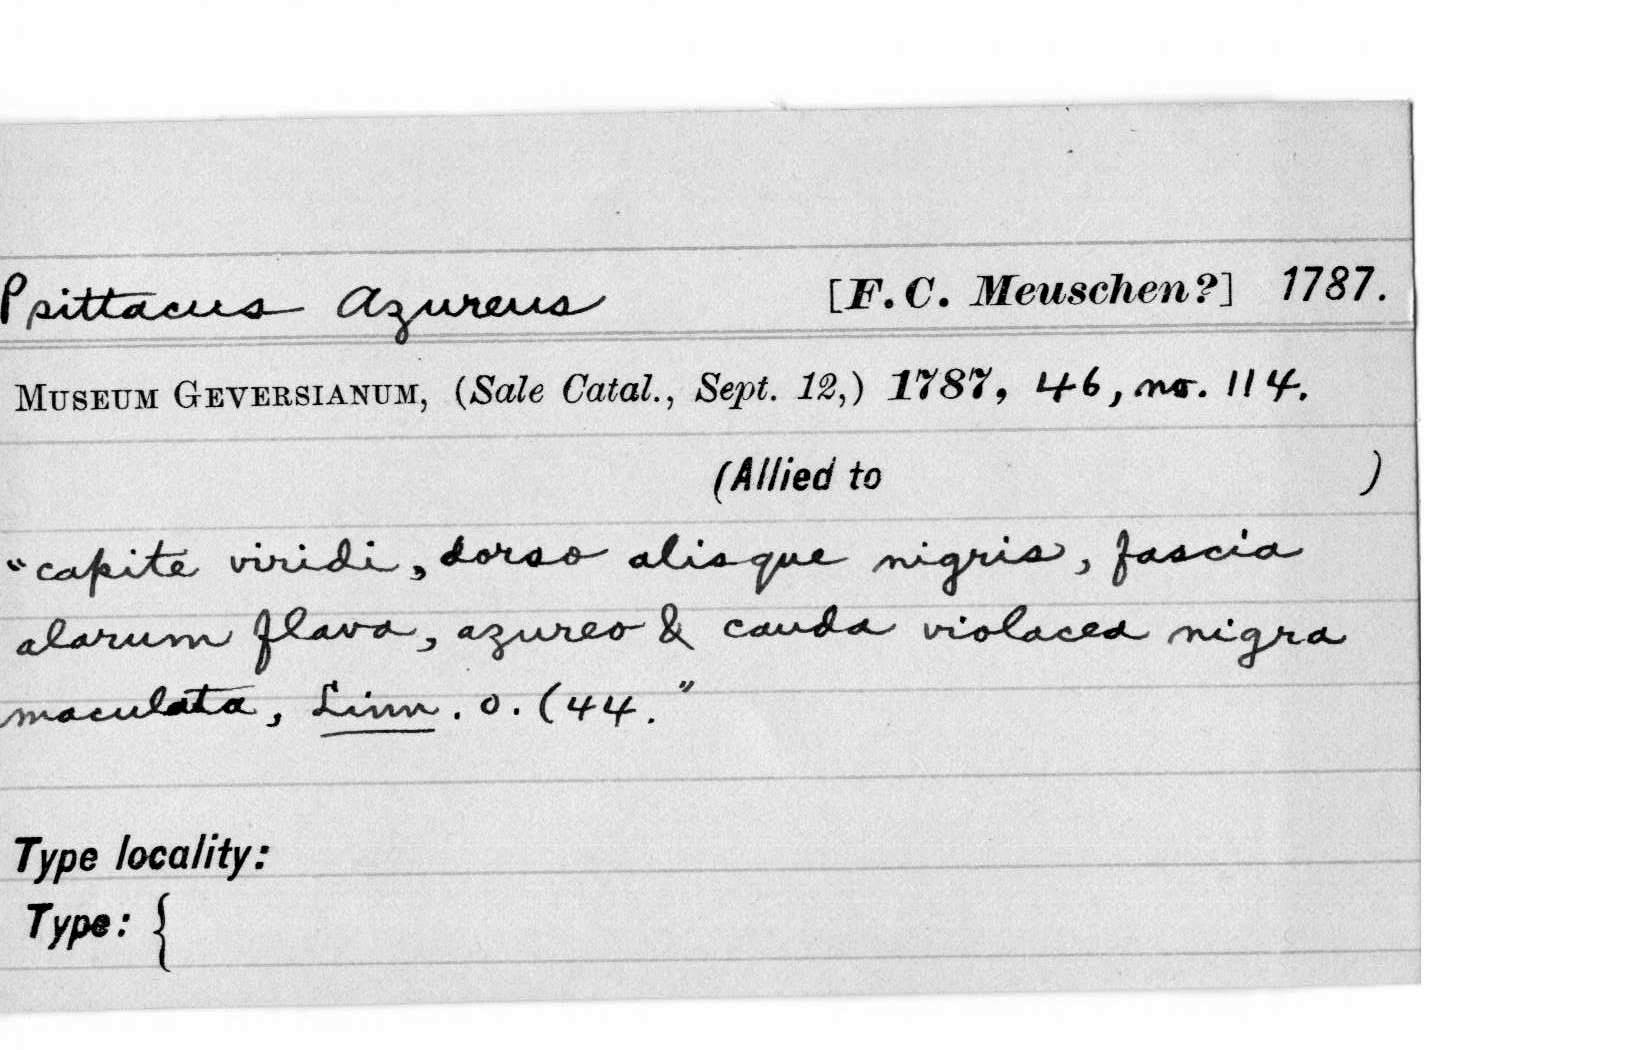 Psittacus azureus [F. C. Meuschen?] 1787.
MUSEUM GEVERSIANUM, (Sale Catal., Sept. 12,) 1787, 46, no. 114.
(Allied to )
"capite viridi, dorso alisque nigris, fascia
alarum flava, azureo & cauda violacea nigra
maculata, Linn. o. (44."
Type locality:
Type: {